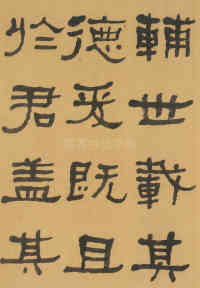 輔世載其
德爰既且
於君盖其